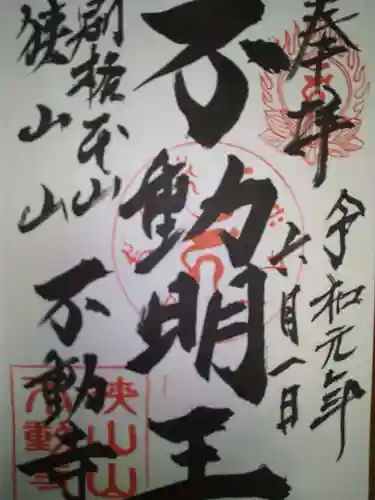 奉拝
令和元年
六月一日
不動明王
狭山山
不動寺
狭山山
不動寺